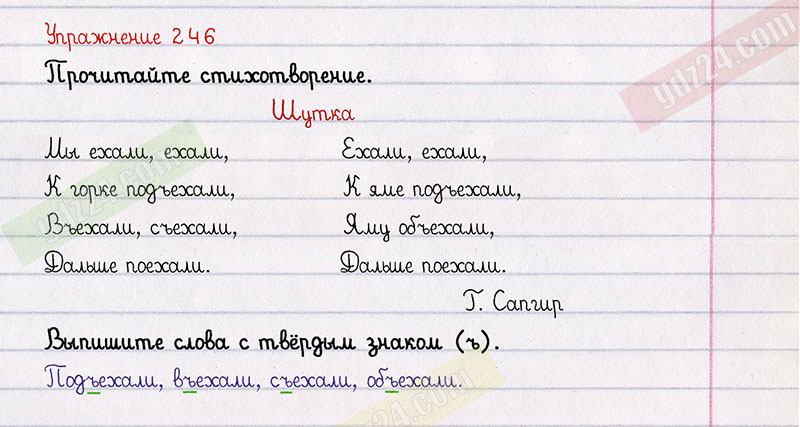 Упражнение 246
Прочитайте стихотворение.
Шутка
Мы ехали, ехали,
К горке подъехали,
Въехали, съехали,
Дальше поехали.
Ехали, ехали,
К яме подъехали,
Яму объехали,
Дальше поехали.
Г. Сапгир
Выпишите слова с твёрдым знаком (ъ).
Подъехали, въехали, съехали, объехали.
gdz24.com
gdz24.com
gdz24.com